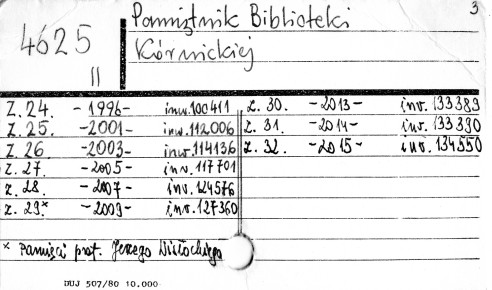 3
Pamiętnik Biblioteki
4625 Kórnickiej
II
Z. 24. -1996- inw. 100411 z. 30. -2013- inv. 133383
Z. 25. -2001- inw. 112006 z. 31. -2014- inv. 133390
Z. 26 -2003- inw. 114136 z. 32. -2015- inv. 134550
z. 27. -2005- inv. 117701
z. 28. -2007- inv. 124576
z. 29.* -2009- inv. 127360
* Pamięci prof. Jerzego Wisłockiego
DUJ 507/80 10.000